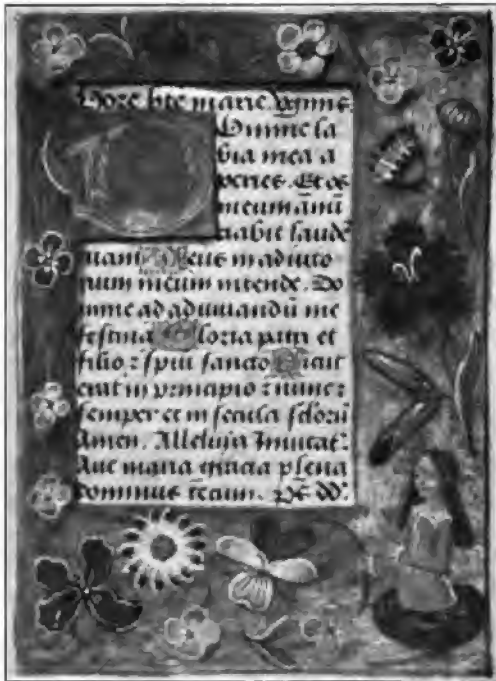 Hore bte marie. vginis.
Domine la
bia mea a
peries. Et os
meum anu
ciabit laudē
tuam Deus in adiuto
rium meum intende. Do
mine ad adiuuandū me
festina Gloria patri et
filio ⁊ spūi sancto Sicut
erat in principio ⁊ nunc ⁊
semper et in secula sclorū
Amen. Alleluia Inuitat.
Aue maria gracia plena
dominus tecum. ps̄